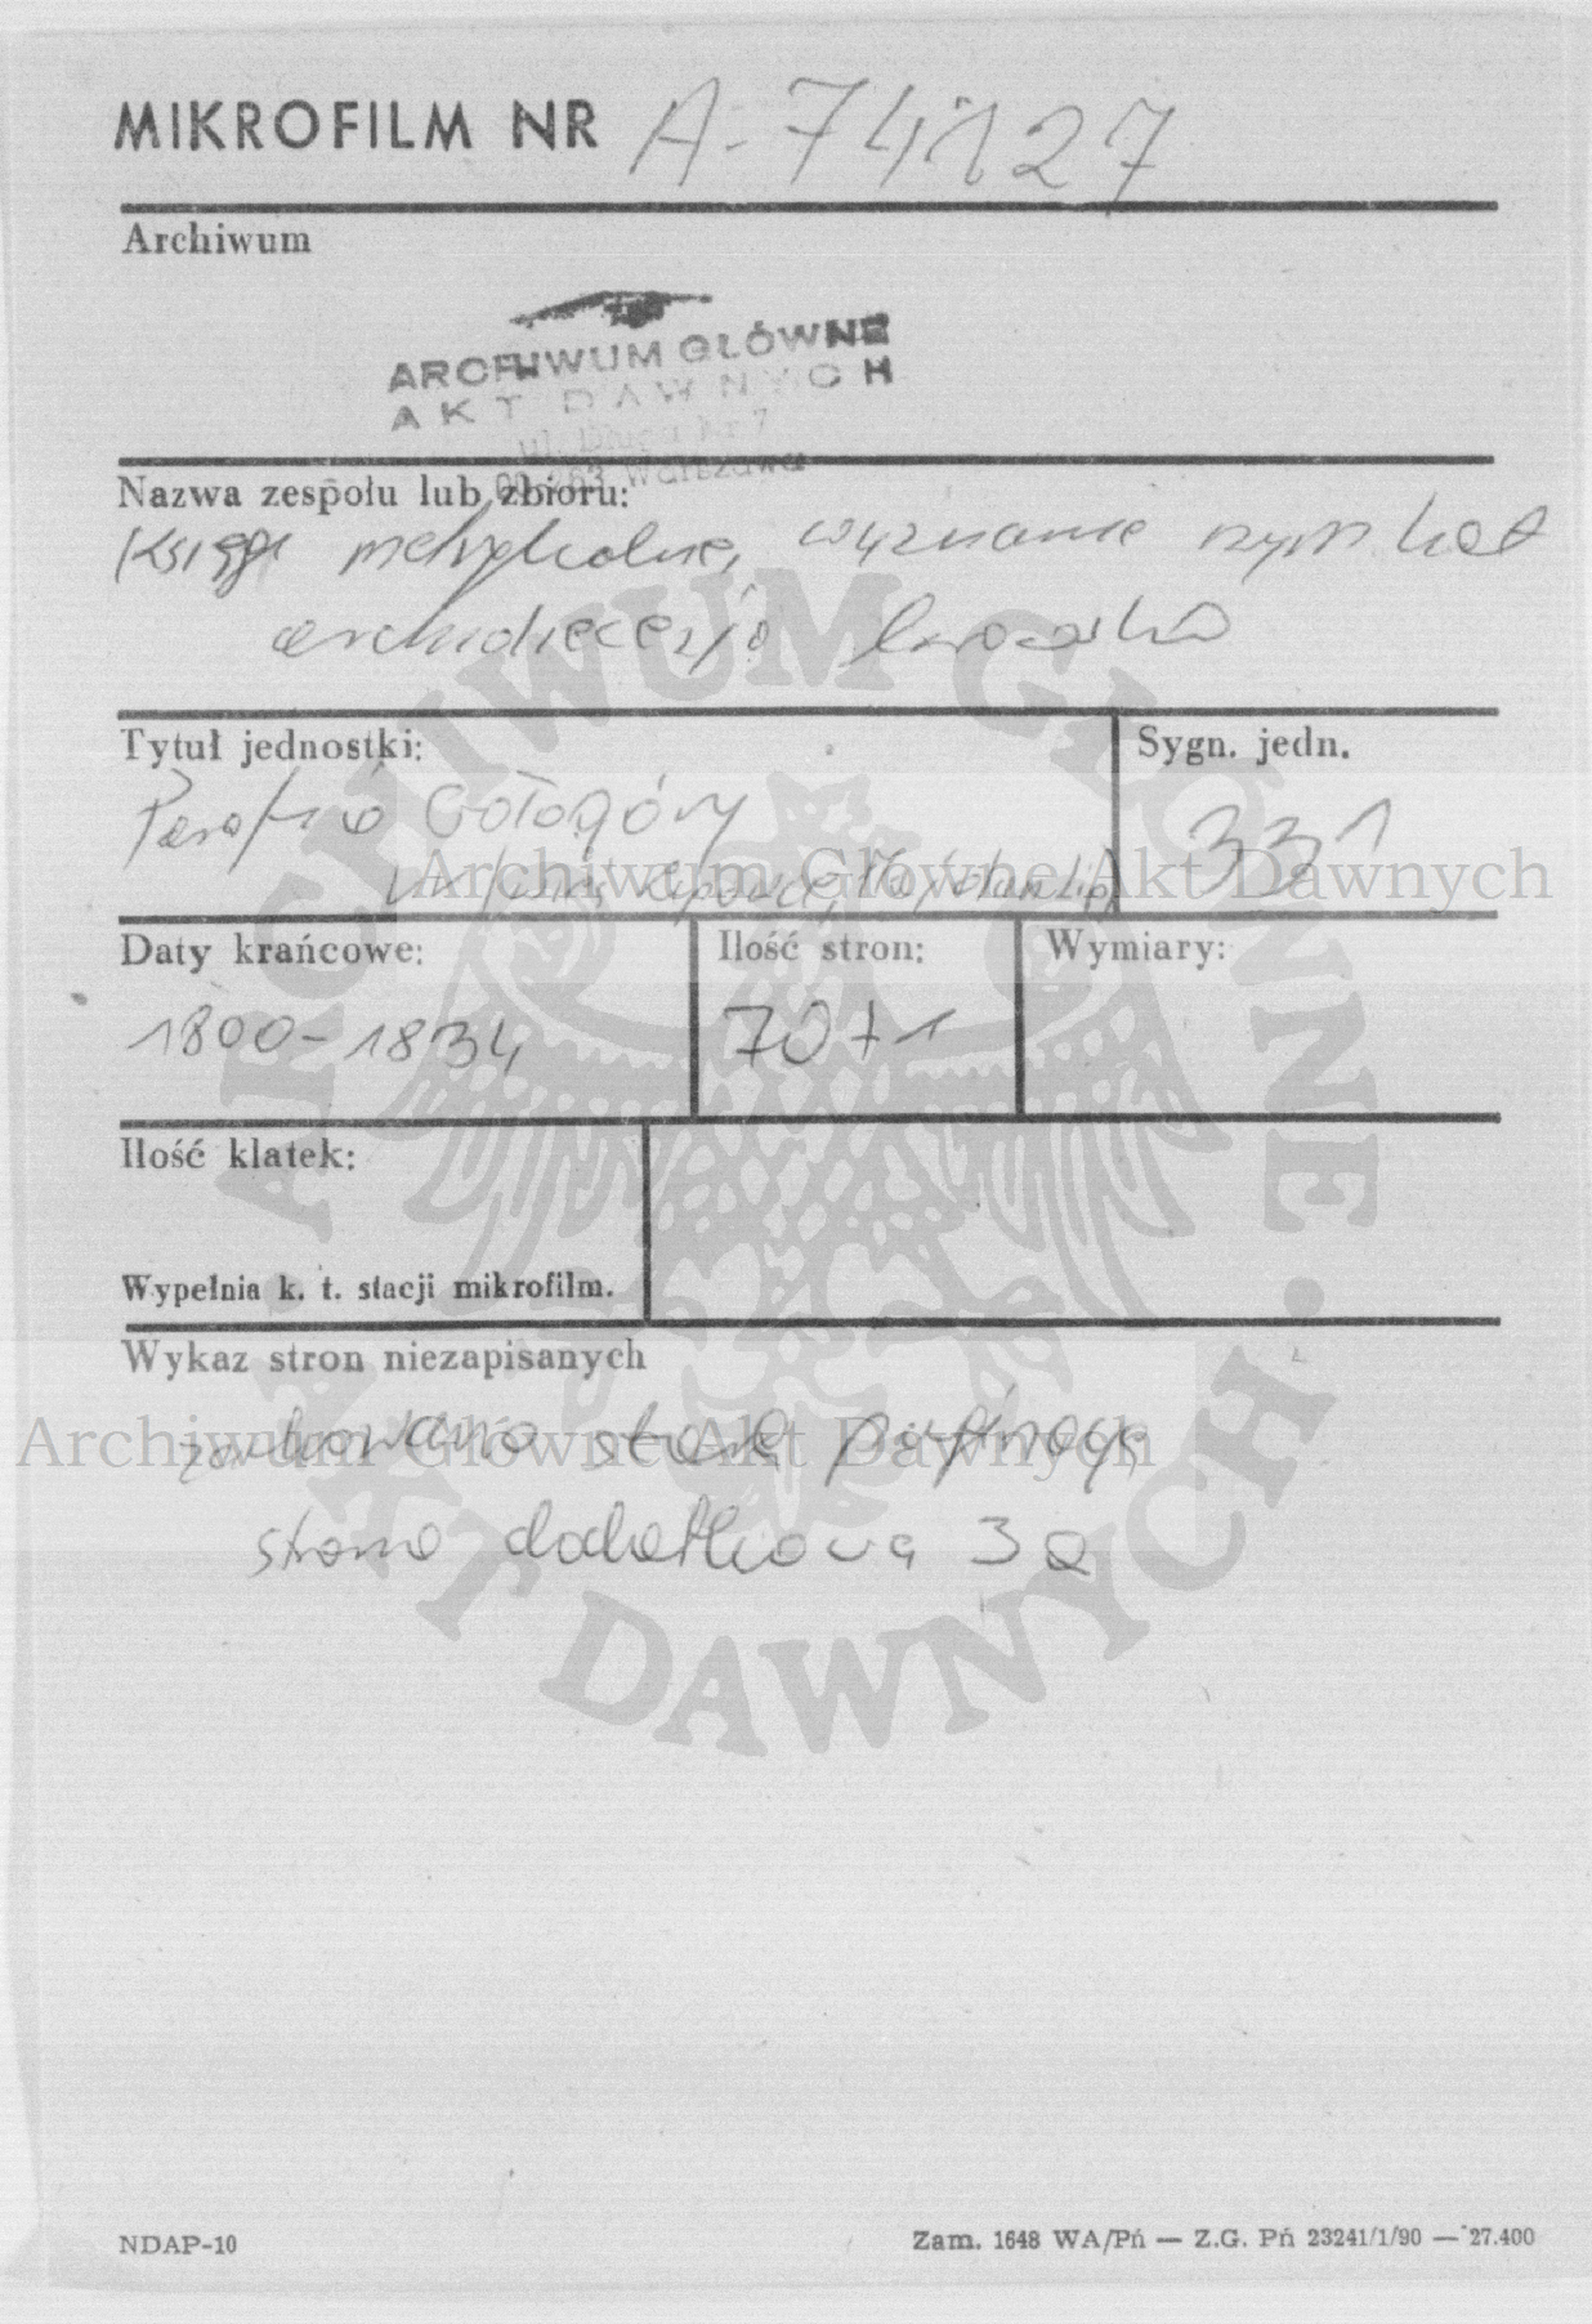 MIKROFILM NR A-74127
Archiwum
ARCHIWUM GŁÓWNE
AKT DAWNYCH
ul. Długa Nr 7
00-263 Warszawa
Nazwa zespołu lub zbioru:
Księgi metrykalne, wyznanie rzym kat
archidiecezja lwowska
Tytuł jednostki:
Parafia Gołogóry
Sygn. jedn.
331
Archiwum Główne Akt Dawnych
Daty krańcowe:
1800-1834
Ilość stron:
70+1
Wymiary:
Ilość klatek:
Wypełnia k. t. stacji mikrofilm.
Wykaz stron niezapisanych
zachowano starą paginację
Archiwum Główne Akt Dawnych
strona dodatkowa 3a
ARCHIWUM GŁÓWNE AKT DAWNYCH
NDAP-10
Zam. 1648 WA/Pń — Z.G. Pń 23241/1/90 — 27.400